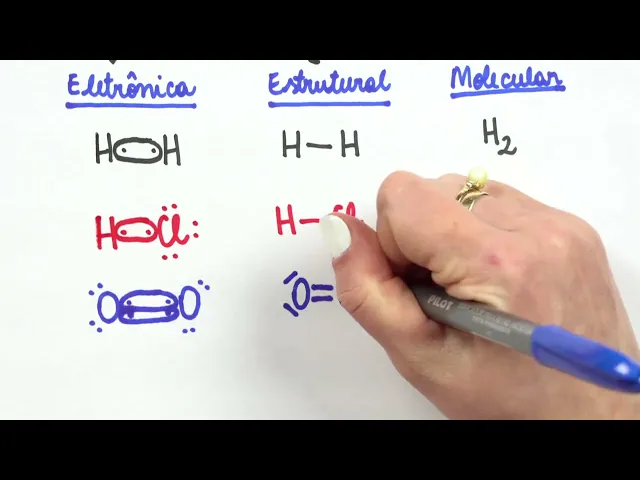 Eletrônica Estrutural Molecular
H H H — H H2
H Cl H — Cl
O O O =
PILOT